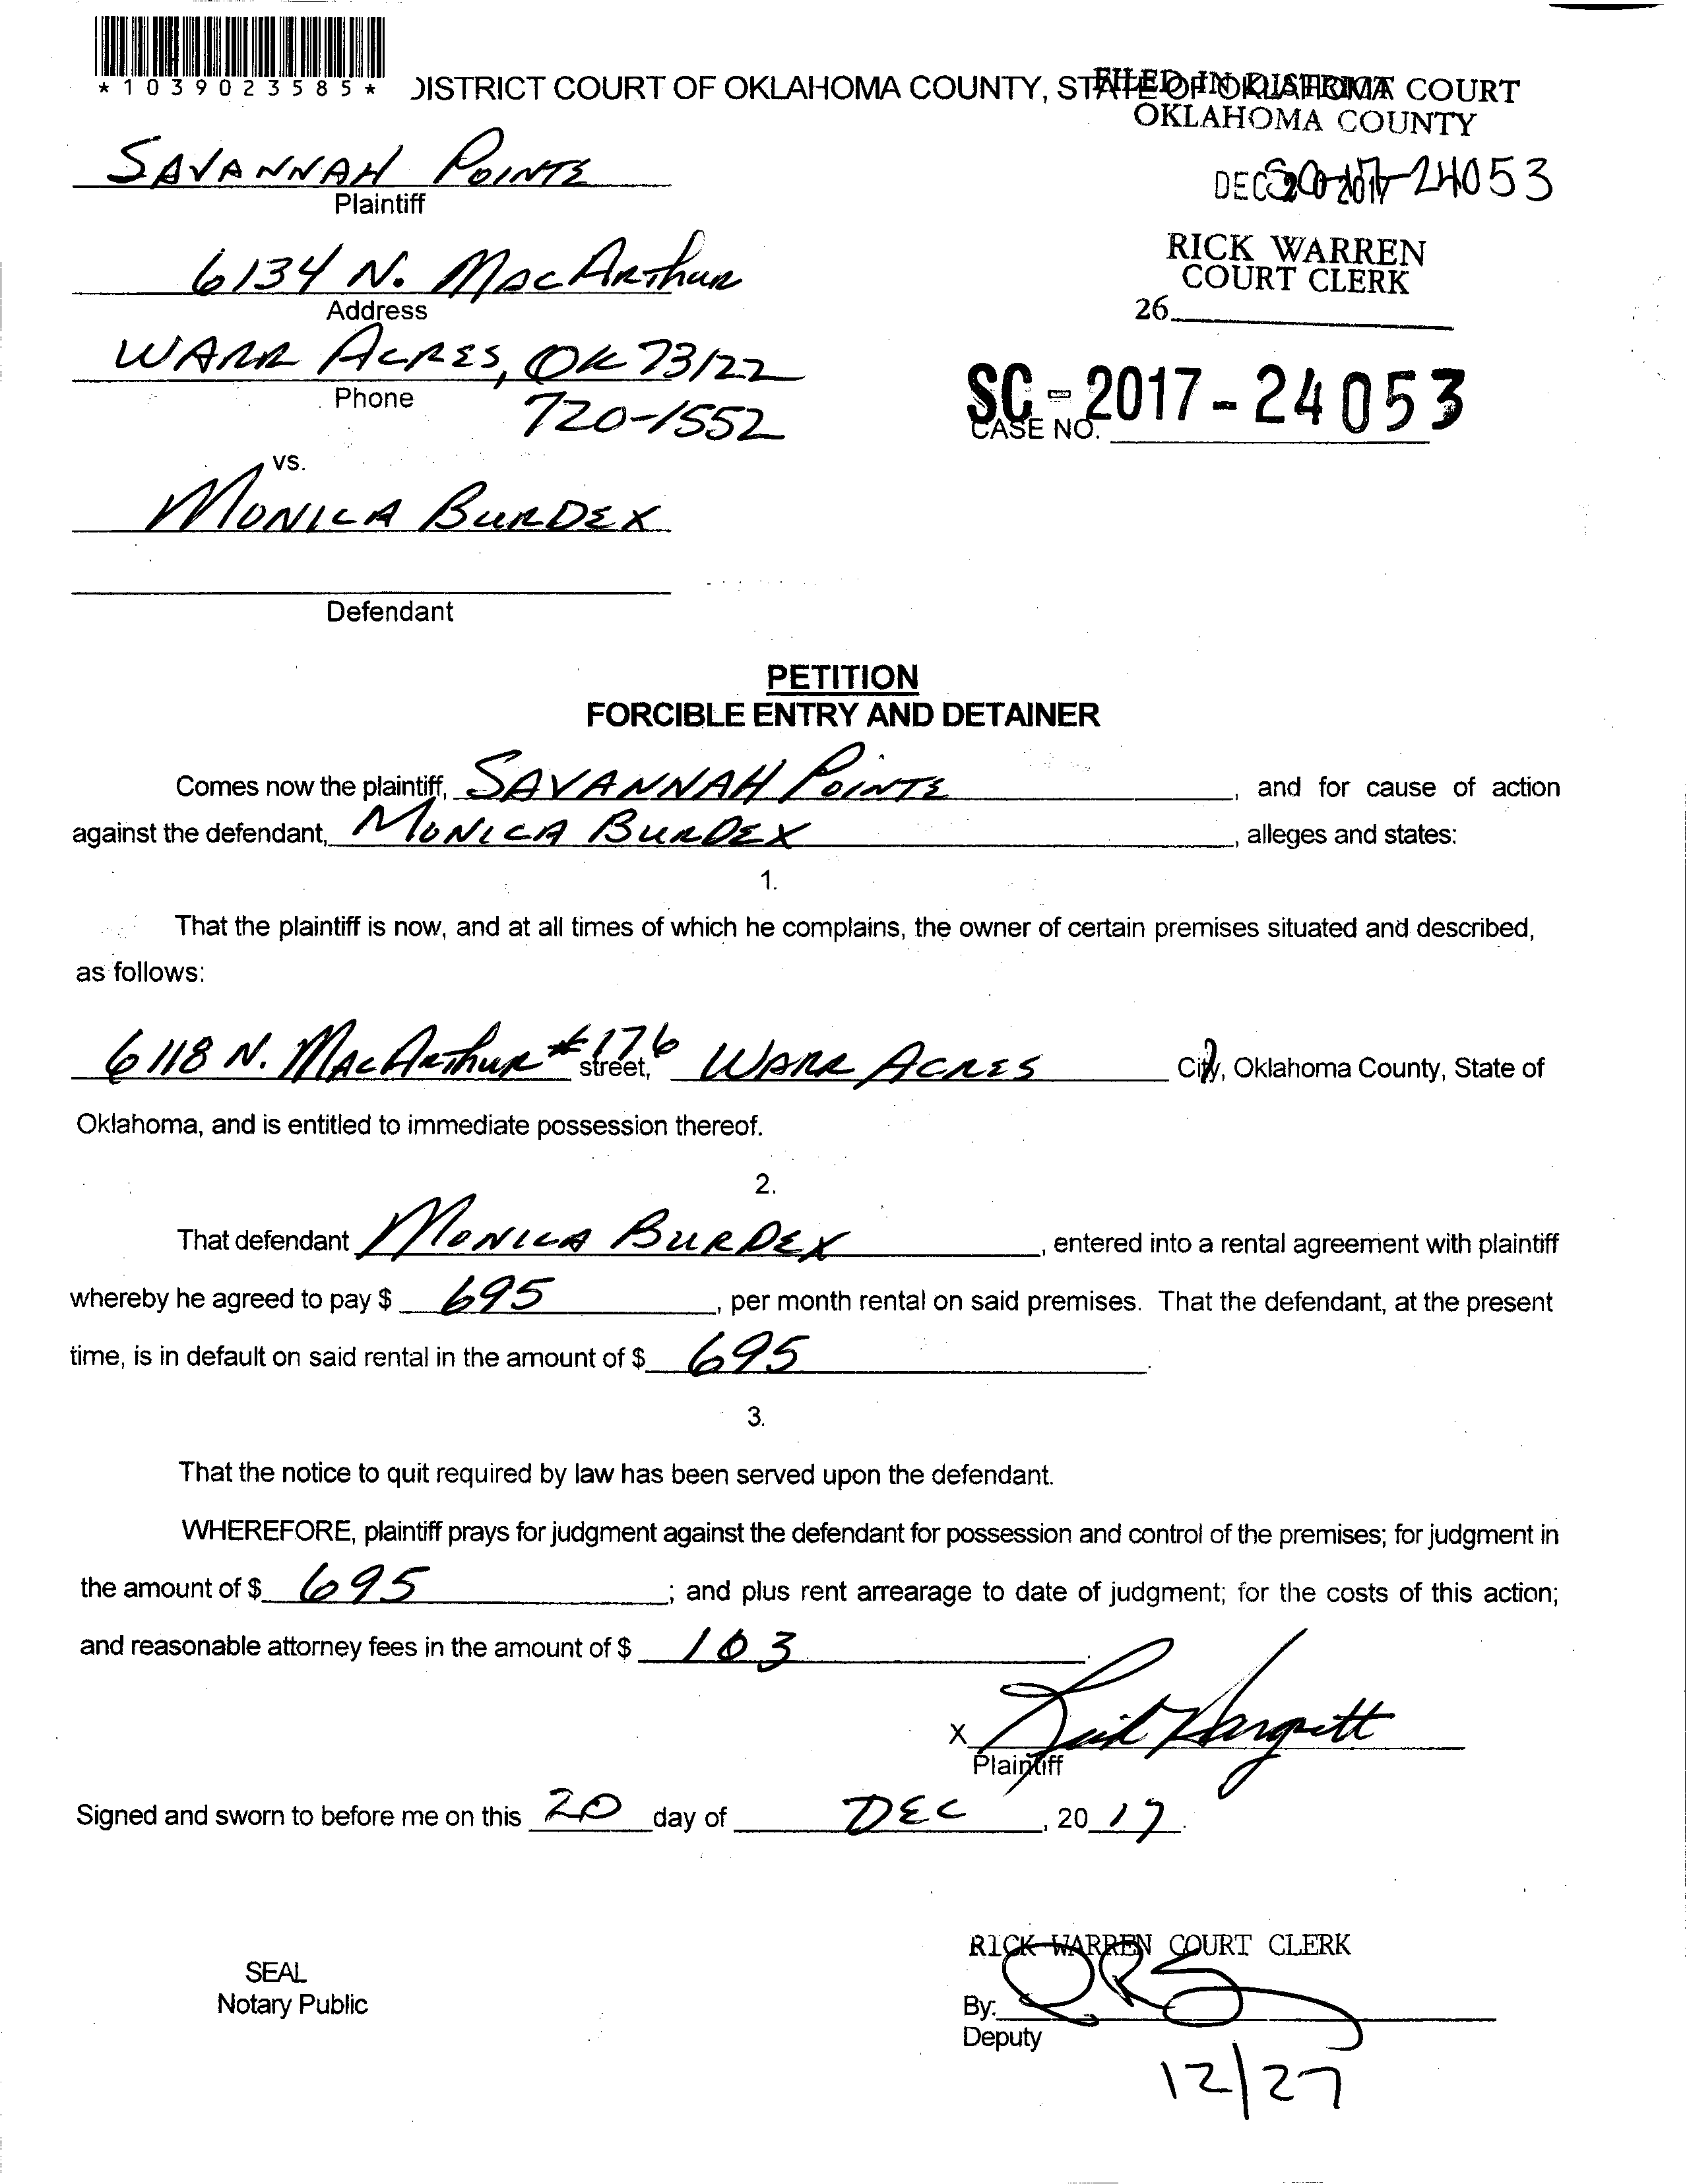 *1039023585*
DISTRICT COURT OF OKLAHOMA COUNTY, STATE OF OKLAHOMA
FILED IN DISTRICT COURT
OKLAHOMA COUNTY
SAVANNAH POINTE
Plaintiff
DEC 20 2017
SC-17-24053
6134 N. MACARTHUR
Address
RICK WARREN
COURT CLERK
26
WARR ACRES, OK 73122
Phone
720-1552
SC-2017-24053
CASE NO.
vs.
MONICA BURDEX
Defendant
PETITION
FORCIBLE ENTRY AND DETAINER
Comes now the plaintiff, SAVANNAH POINTE, and for cause of action
against the defendant, MONICA BURDEX, alleges and states:
1.
That the plaintiff is now, and at all times of which he complains, the owner of certain premises situated and described,
as follows:
6118 N. MACARTHUR #176 street, WARR ACRES City, Oklahoma County, State of
Oklahoma, and is entitled to immediate possession thereof.
2.
That defendant MONICA BURDEX, entered into a rental agreement with plaintiff
whereby he agreed to pay $ 695, per month rental on said premises. That the defendant, at the present
time, is in default on said rental in the amount of $ 695.
3.
That the notice to quit required by law has been served upon the defendant.
WHEREFORE, plaintiff prays for judgment against the defendant for possession and control of the premises; for judgment in
the amount of $ 695; and plus rent arrearage to date of judgment; for the costs of this action;
and reasonable attorney fees in the amount of $ 103.
X Hargett
Plaintiff
Signed and sworn to before me on this 20 day of DEC, 2017.
RICK WARREN COURT CLERK
SEAL
Notary Public
By:
Deputy
12/27